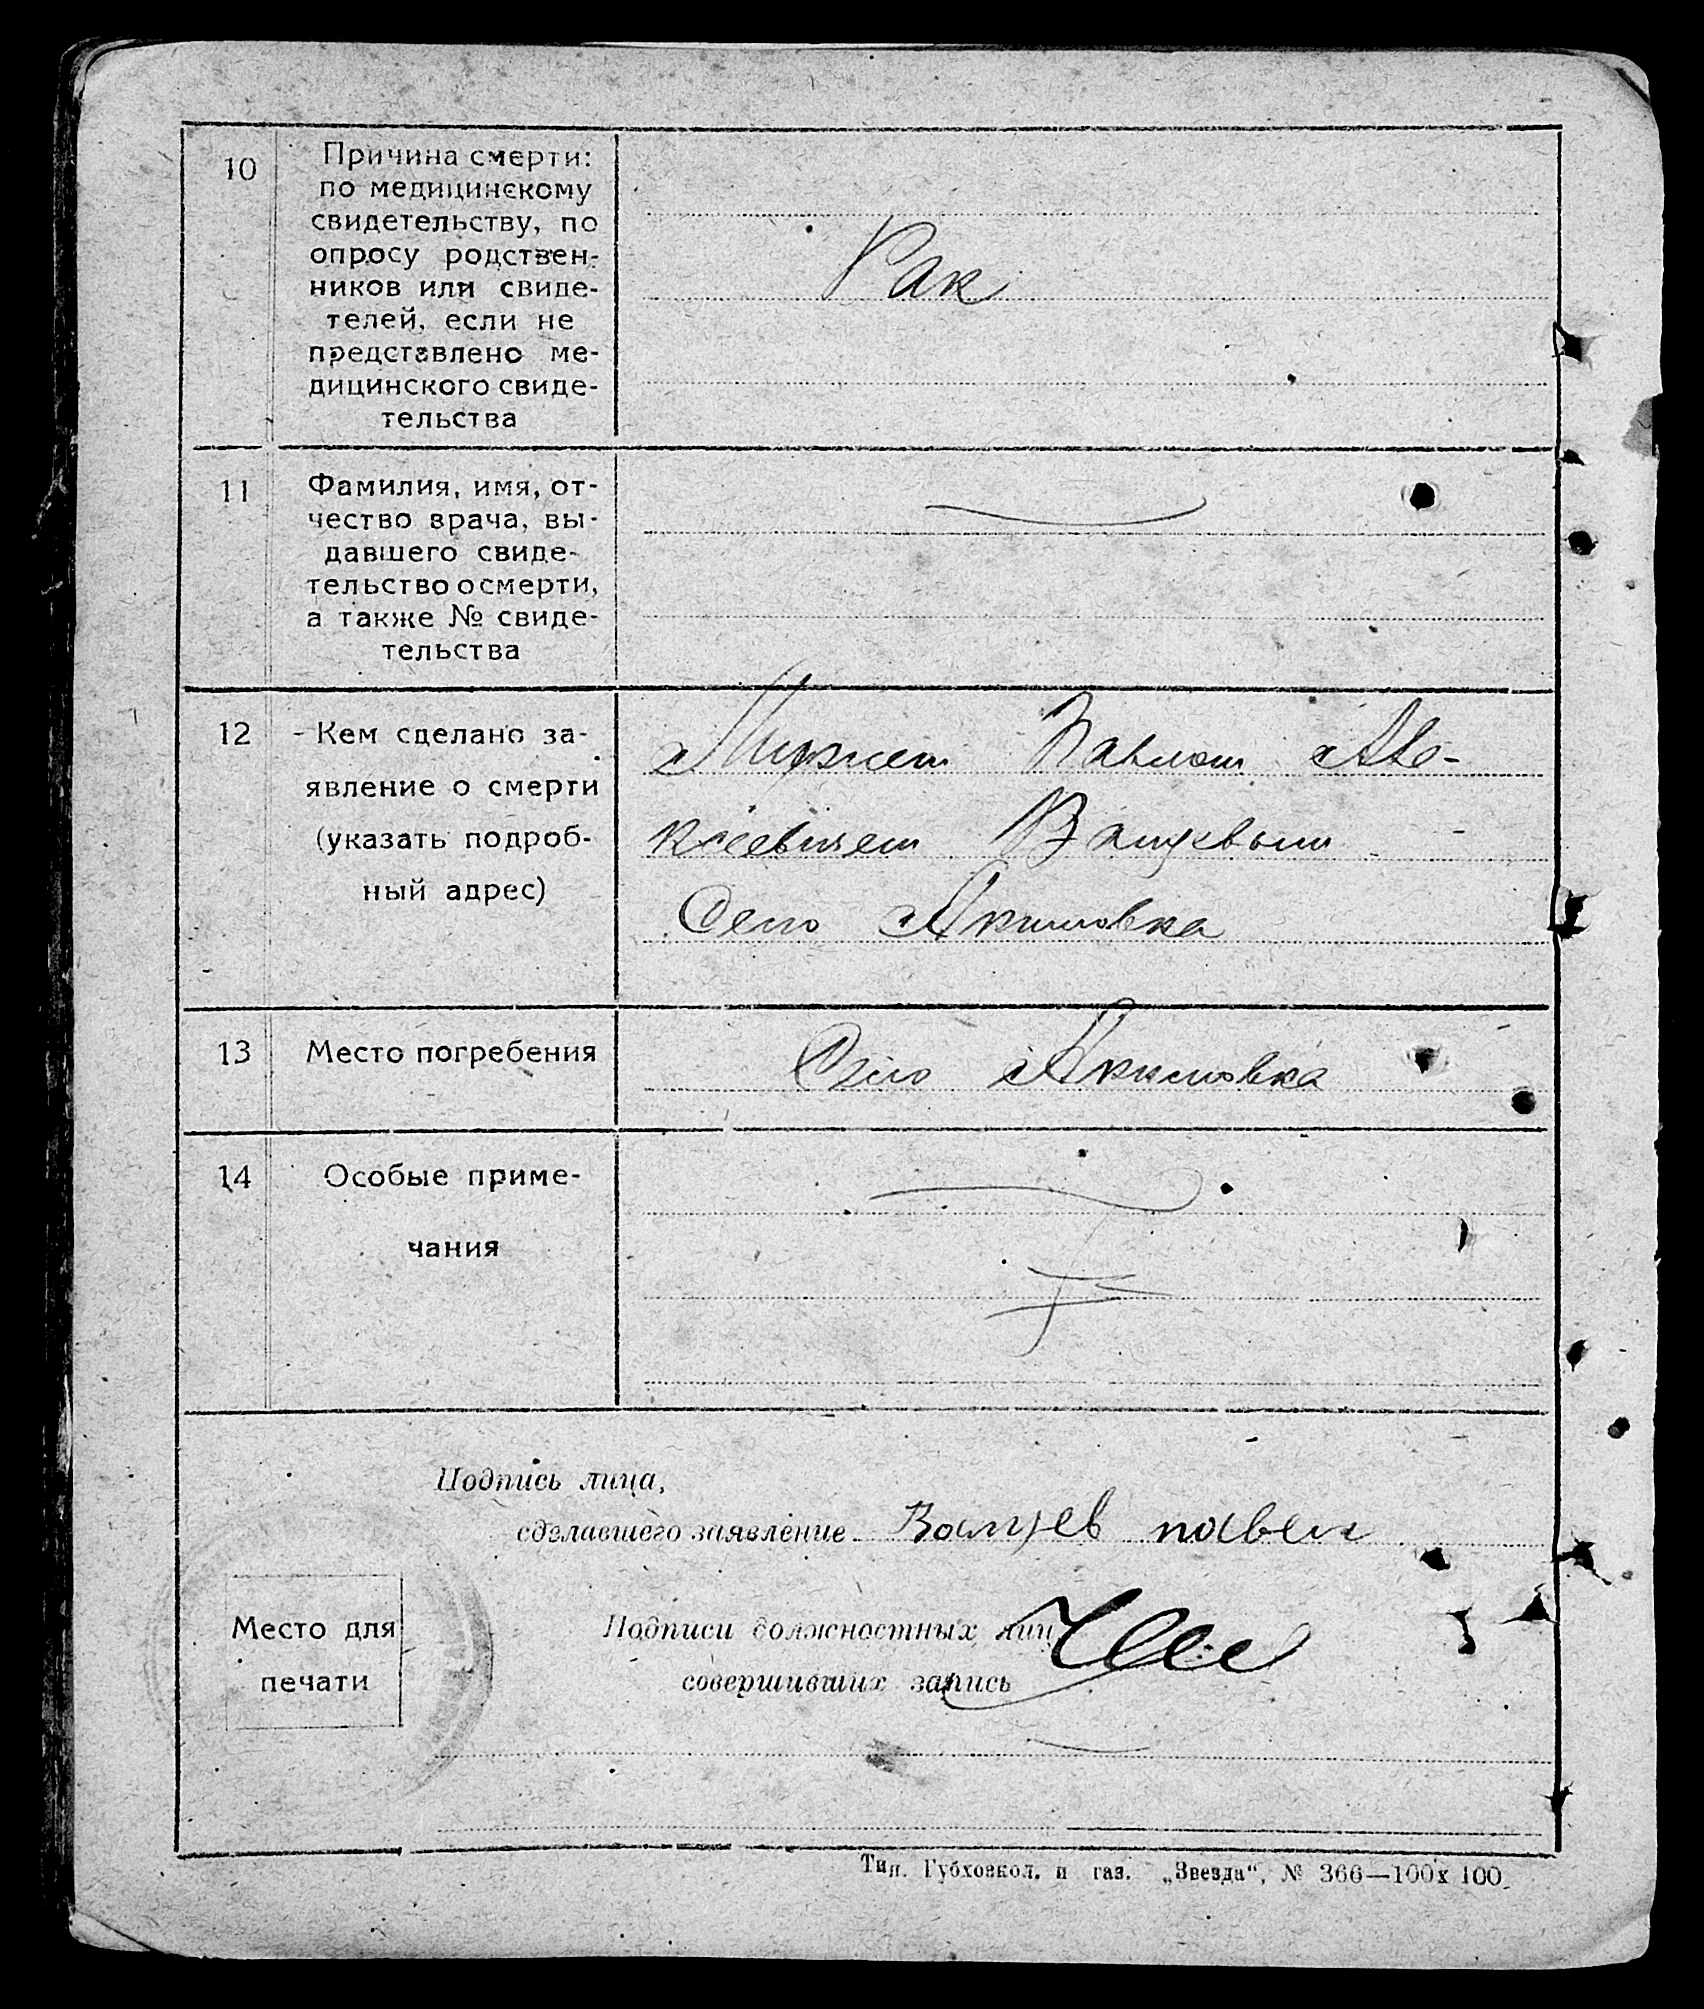 10
Причина смерти:
по медицинскому
свидетельству, по
опросу родствен-
ников или свиде-
телей, если не
представлено ме-
дицинского свиде-
тельства
Рак
11
Фамилия, имя, от-
чество врача, вы-
давшего свиде-
тельство о смерти,
а также № свиде-
тельства
12
Кем сделано за-
явление о смерти
(указать подроб-
ный адрес)
Мужем Павлом Але-
ксеевичем
Село Акимовка
13
Место погребения
Село Акимовка
14
Особые приме-
чания
Подпись лица,
сделавшего заявление павел
Место для
печати
Подписи должностных лиц
совершивших запись
Тип. Губховкол. и газ. „Звезда“, № 366—100х100